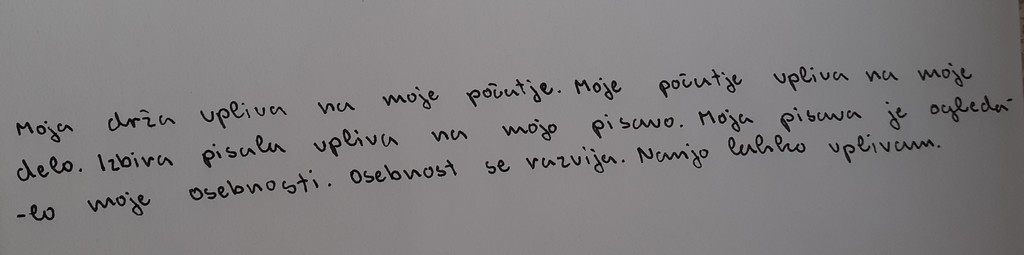 Moja drža vpliva na moje počutje. Moje počutje vpliva na moje
delo. Izbira pisala vpliva na mojo pisavo. Moja pisava je ogleda-
-lo moje osebnosti. Osebnost se razvija. Nanjo lahko vplivam.